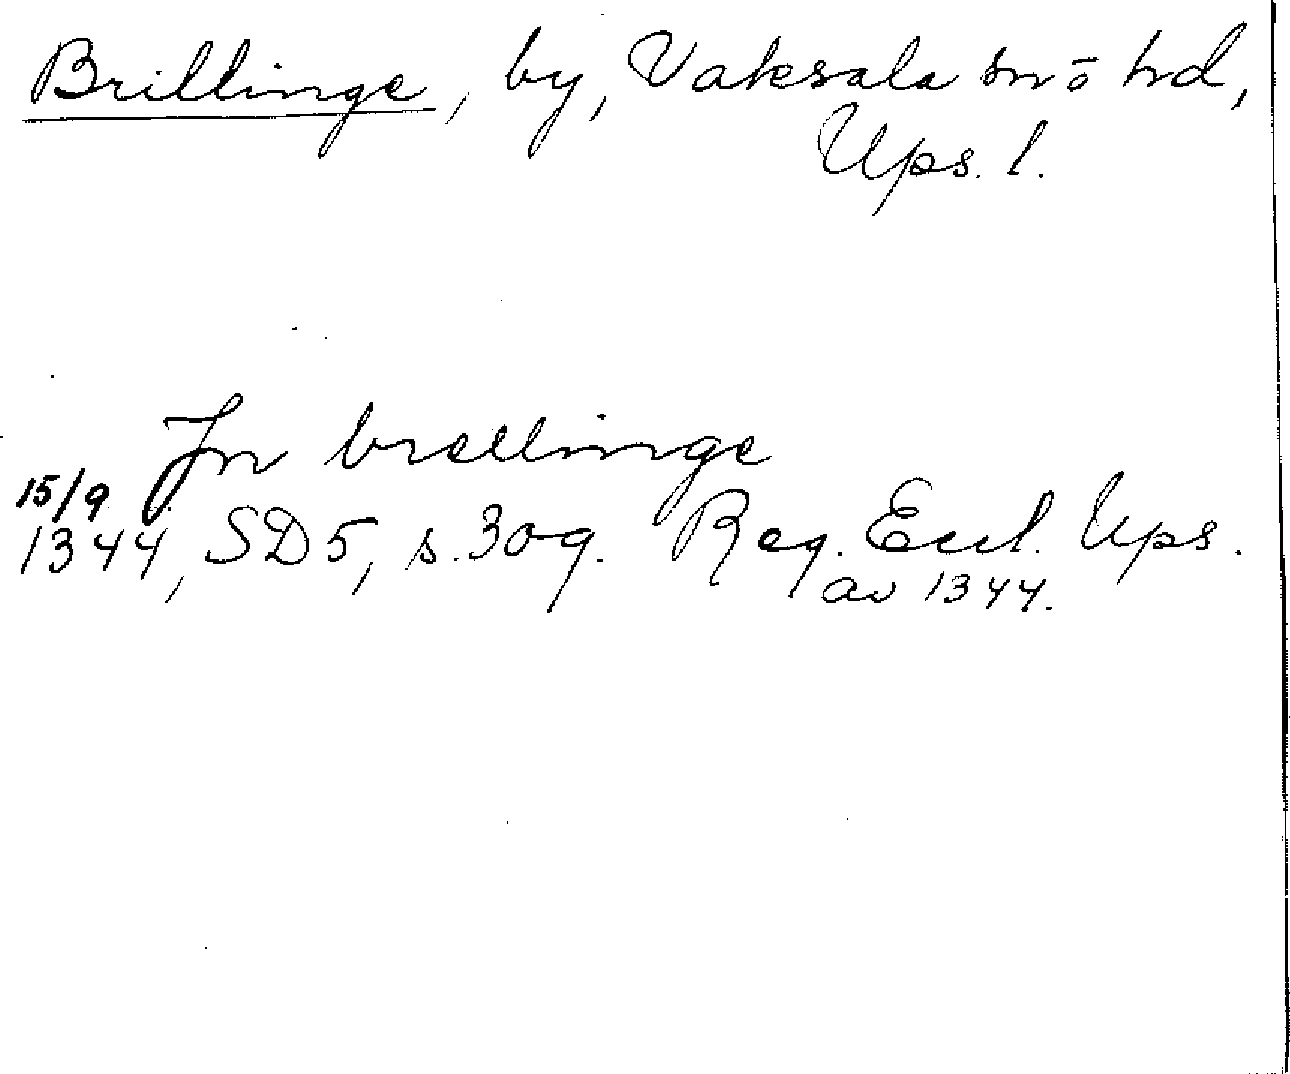 Brillinge, by, Vaksala sn o hd,
Ups. l.
In brellinge
15/9
1344, SD 5, s. 309. Reg. Eccl. Ups.
av 1344.